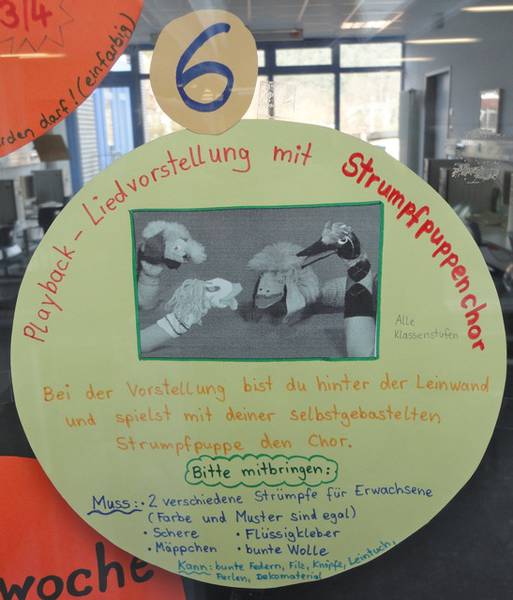 3/4
rden darf! (einfarbig)
6
Playback - Liedvorstellung mit Strumpfpuppenchor
Alle
Klassenstufen
Bei der Vorstellung bist du hinter der Leinwand
und spielst mit deiner selbstgebastelten
Strumpfpuppe den Chor.
Bitte mitbringen:
Muss: • 2 verschiedene Strümpfe für Erwachsene
(Farbe und Muster sind egal)
• Schere • Flüssigkleber
• Mäppchen • bunte Wolle
Kann: bunte Federn, Filz, Knöpfe, Leintuch,
Perlen, Dekomaterial
woche